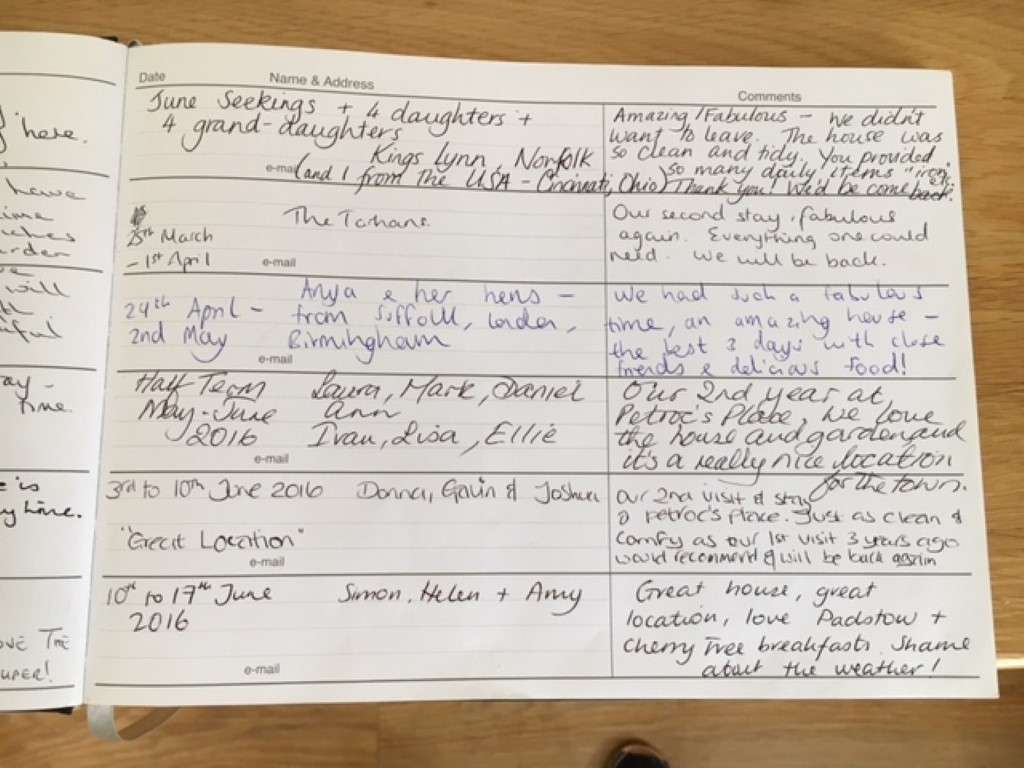 here.
have
ime
rder
will
ful
ay -
time.
is
y time.
OVE THE
UPER!
Date Name & Address Comments
June Seekings + 4 daughters +
4 grand-daughters
Kings Lynn, Norfolk
e-mail (and 1 from the USA - Cincinati, Ohio)
Amazing/Fabulous - we didn't
want to leave. The house was
so clean and tidy. You provided
so many daily items "iron"
Thank you! We'd be come back.
The Tarhans.
25th March
- 1st April
e-mail
Our second stay, fabulous
again. Everything one could
need. We will be back.
Anya & her hens -
24th April - from Suffolk, London,
2nd May Birmingham
e-mail
We had such a fabulous
time, an amazing house -
the best 3 days with close
friends & delicious food!
Half Term Laura, Mark, Daniel
May-June Ann
2016 Ivan, Lisa, Ellie
e-mail
Our 2nd year at
Petroc's Place, we love
the house and garden and
it's a really nice location
for the town.
3rd to 10th June 2016 Donna, Gavin & Joshua
"Great Location"
e-mail
Our 2nd visit & stay
@ Petroc's Place. Just as clean &
comfy as our 1st visit 3 years ago
would recommend & will be back again
10th to 17th June Simon, Helen + Amy
2016
e-mail
Great house, great
location, love Padstow +
Cherry Tree breakfasts. Shame
about the weather!